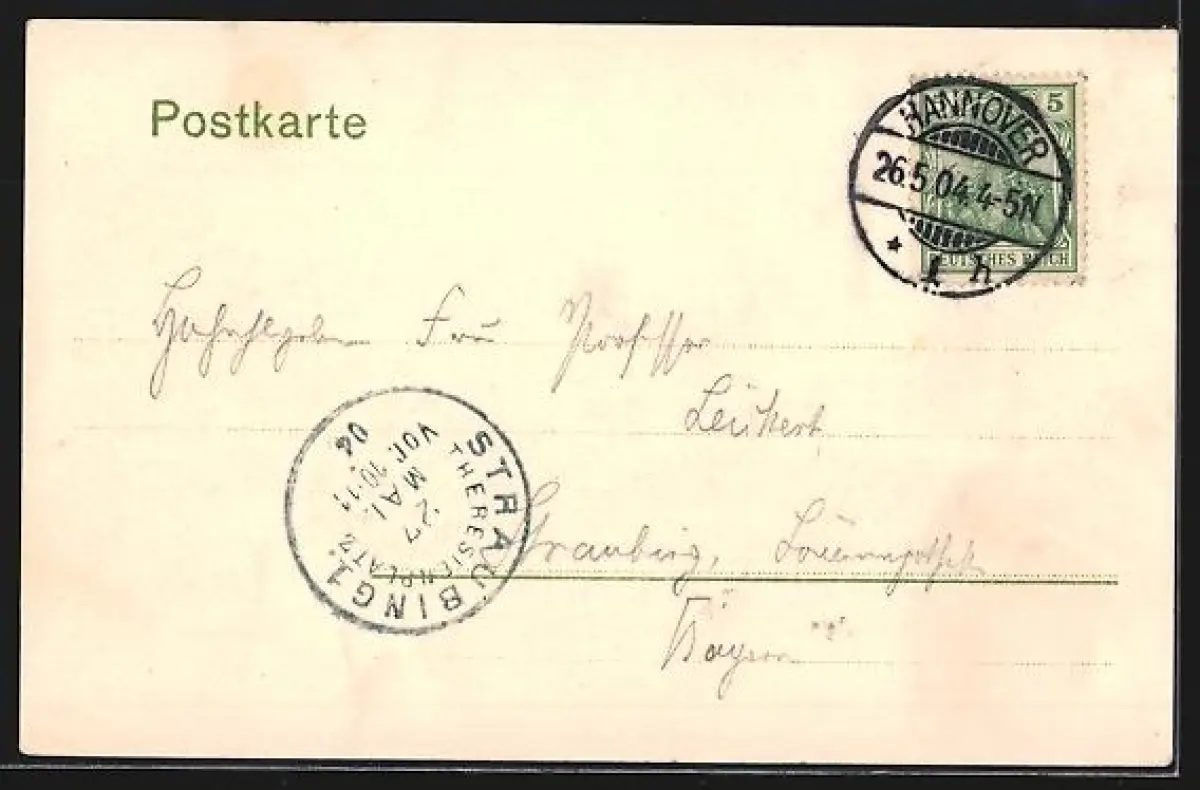 Postkarte
5
HANNOVER
26.5.04. 4-5N
* 1 h
DEUTSCHES REICH
Frau Professor
STRAUBING 1.
THERESIENPLATZ
VOR. 10-11
MAI
27
04
Straubing, Löwenapotheke
Bayern